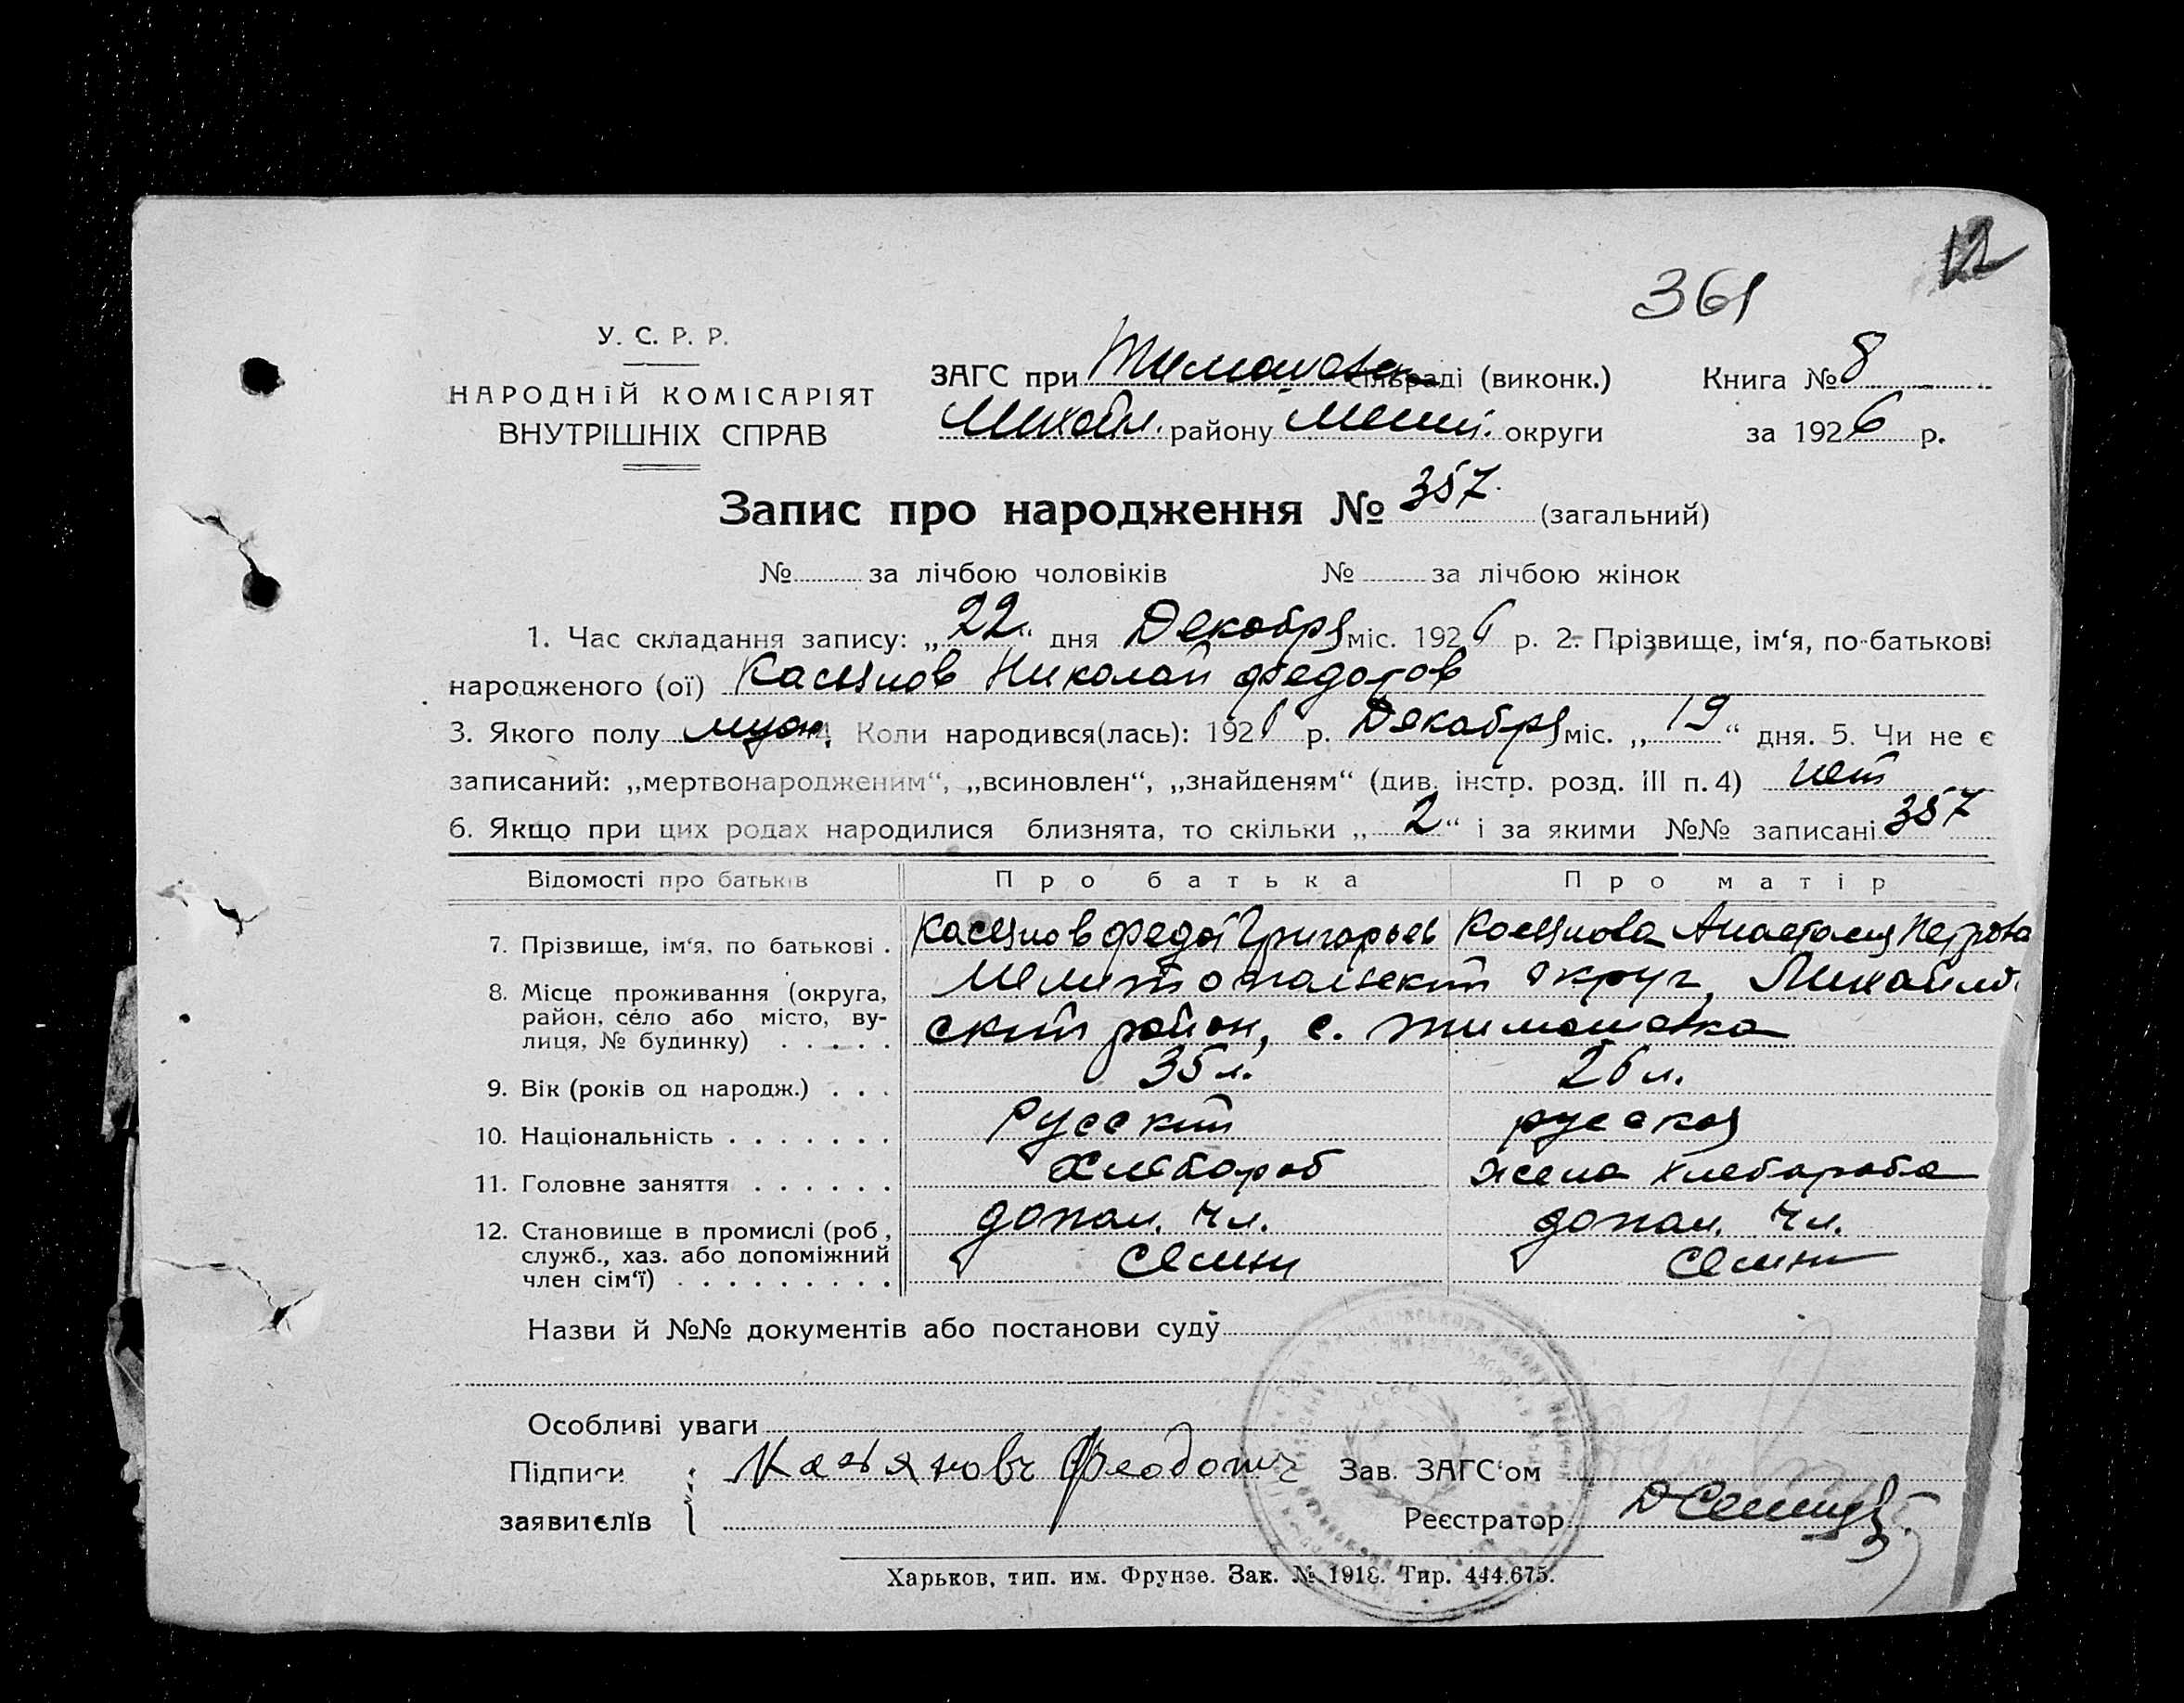 12
361
У. С. Р. Р.
НАРОДНІЙ КОМІСАРІЯТ
ВНУТРІШНІХ СПРАВ
ЗАГС при Тимошовск сільраді (виконк.) Книга № 8
Михайл. району Мелит. округи за 1926 р.
Запис про народження № 357. (загальний)
№ за лічбою чоловіків № за лічбою жінок
1. Час складання запису: „22“ дня Декабря міс. 1926 р. 2. Прізвище, ім‘я, по-батькові
народженого (ої) Касьянов Николай Федотов
3. Якого полу муж. 4. Коли народився(лась): 1926 р. Декабря міс. „19“ дня. 5. Чи не є
записаний: „мертвонародженим“, „всиновлен“, „знайденям“ (див. інстр. розд. III п. 4) нет
6. Якщо при цих родах народилися близнята, то скільки „2“ і за якими №№ записані 357
Відомості про батьків Про батька Про матір
7. Прізвище, ім‘я, по батькові . Касьянов Федот Григорьев Касьянова Анастасия Петрова
8. Місце проживання (округа, Мелитопольский округ, Михайлов
район, село або місто, ву- ский район, с. Тимошовка
лиця, № будинку) . . . . .
9. Вік (років од народж.) . . . 35 л. 26 л.
10. Національність . . . . . . . Русский русская
11. Головне заняття . . . . . . Хлебороб жена хлебороба
12. Становище в промислі (роб, допом. чл. допом. чл.
служб., хаз. або допоміжний семьи семьи
член сім‘ї) . . . . . . . . .
Назви й №№ документів або постанови суду
Особливі уваги
Підписи Касьяновъ Феодотъ Зав. ЗАГС‘ом
заявителів Реєстратор
Харьков, тип. им. Фрунзе. Зак. № 1918. Тир. 444.675.